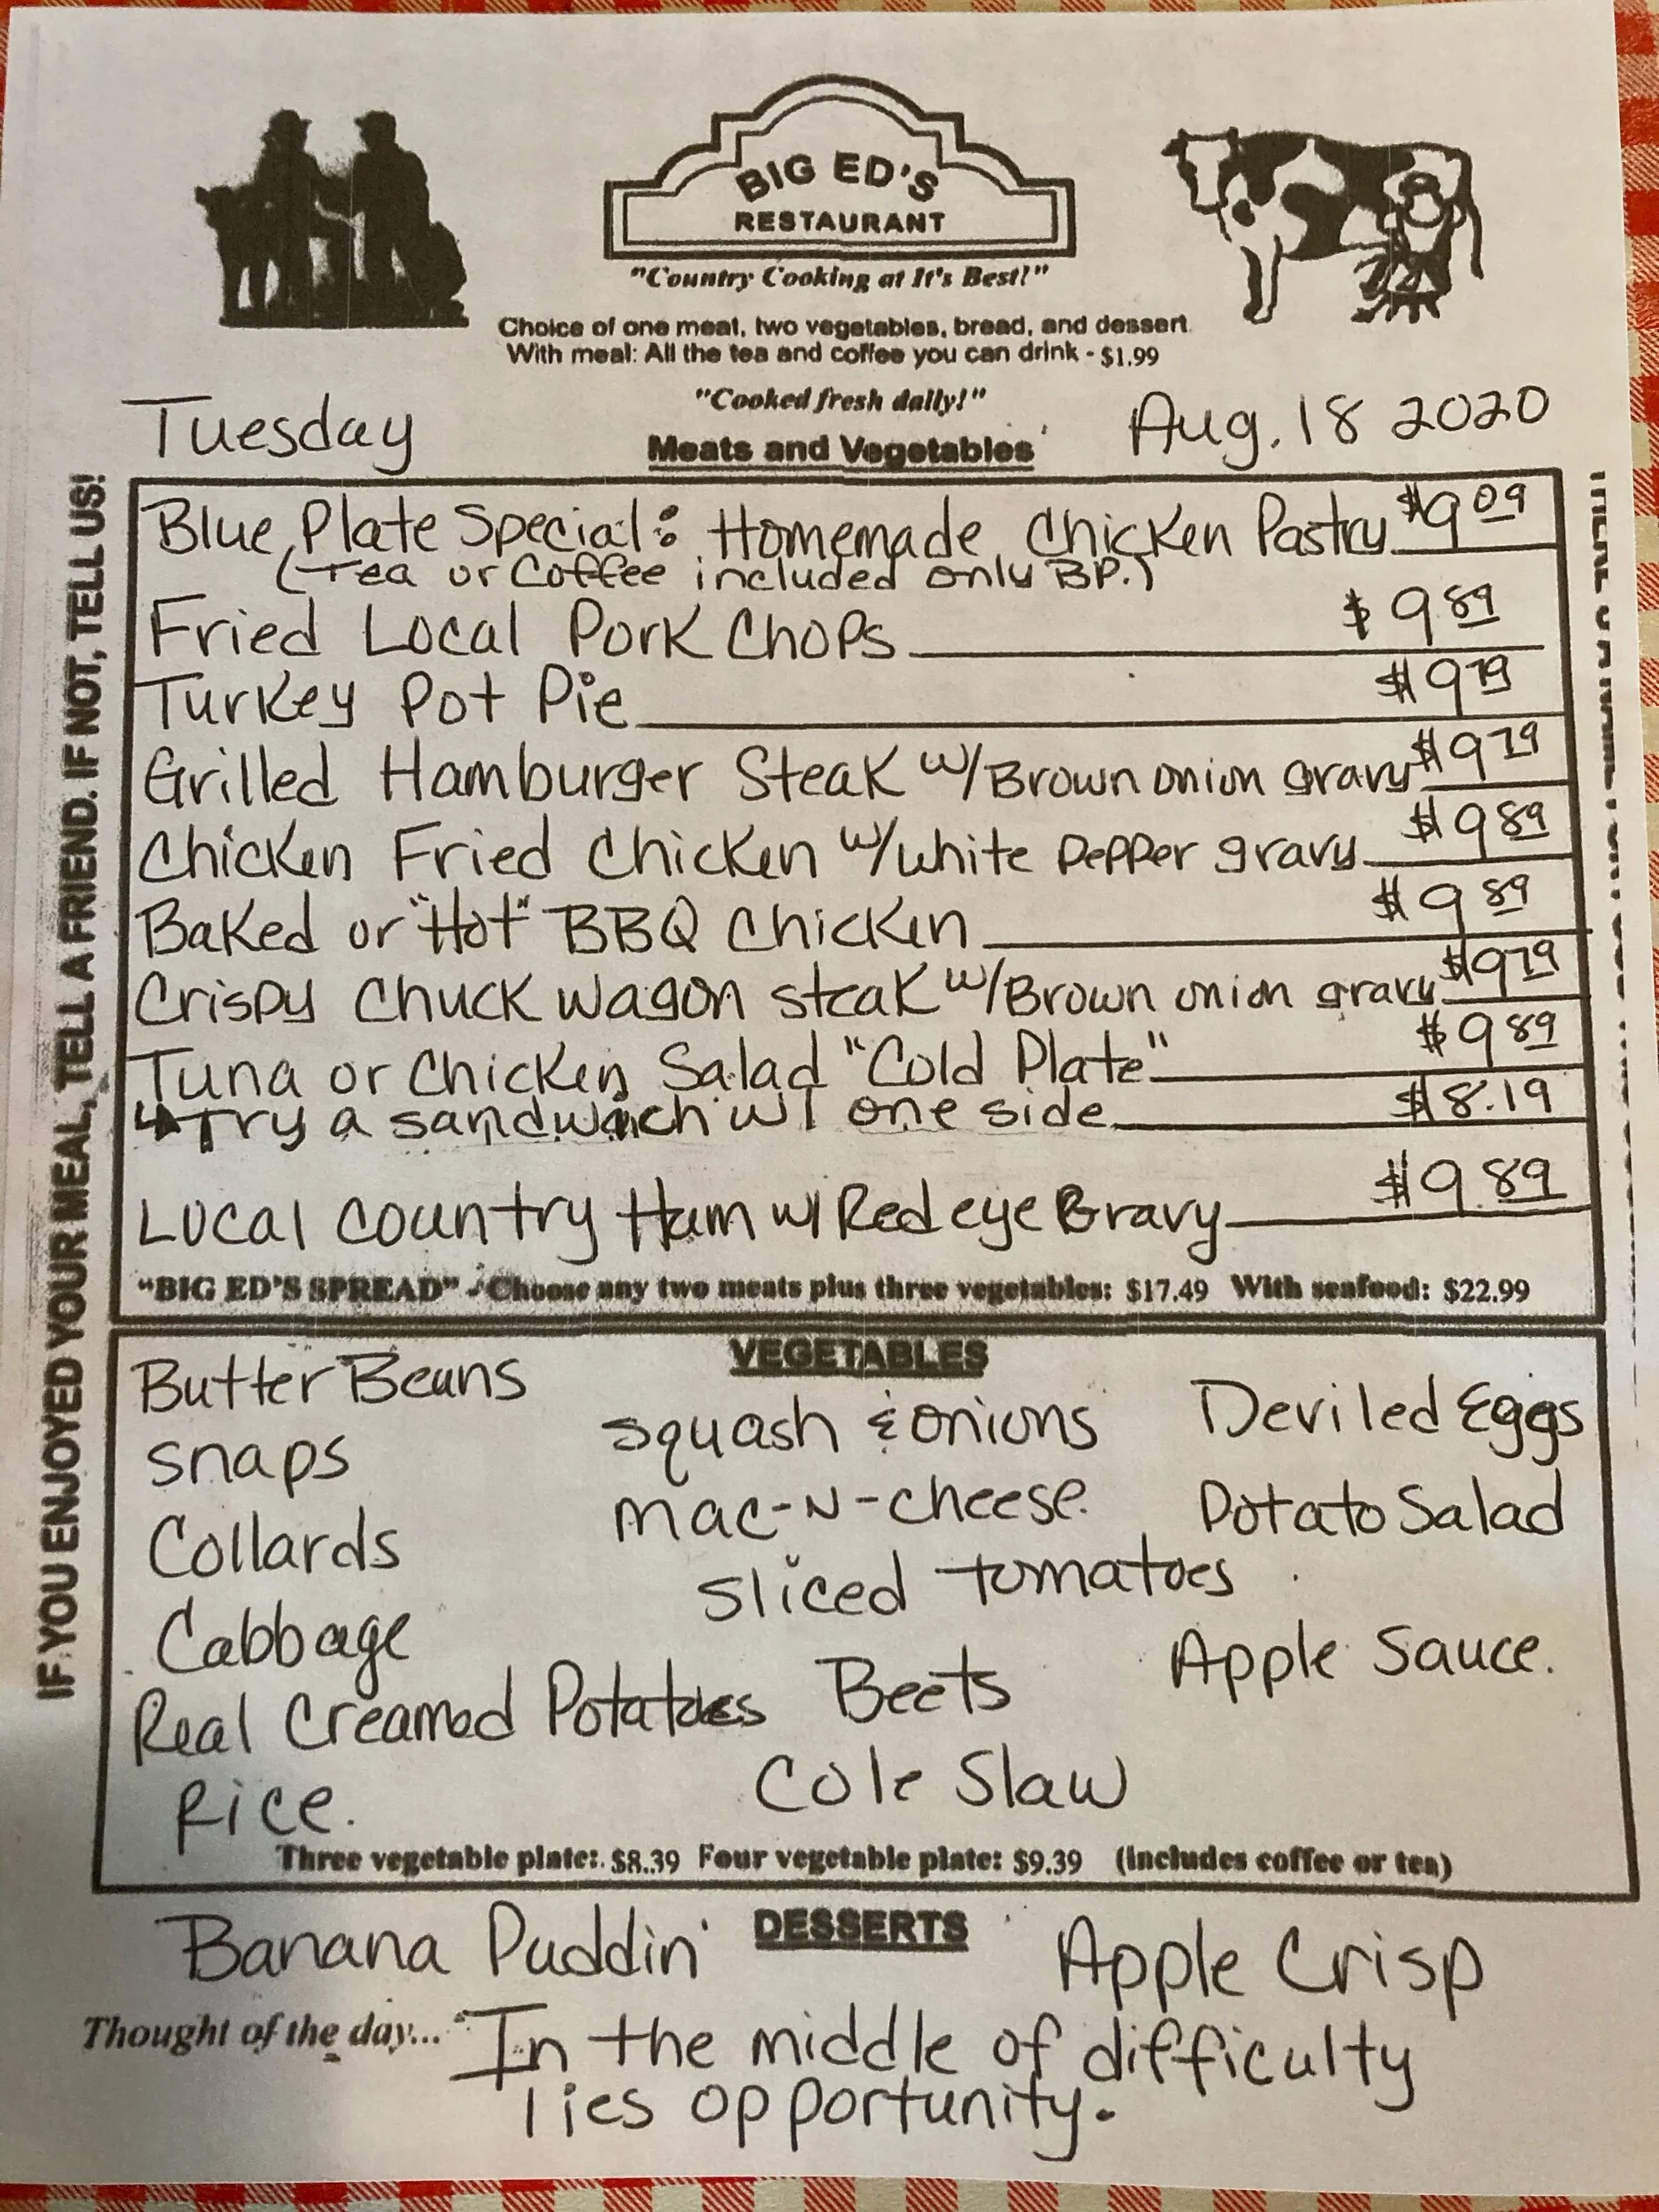 BIG ED'S
RESTAURANT
"Country Cooking at It's Best!"
Choice of one meat, two vegetables, bread, and dessert
With meal: All the tea and coffee you can drink - $1.99
"Cooked fresh daily!"
Tuesday
Aug. 18 2020
Meats and Vegetables
Blue Plate Special: Homemade Chicken Pastry $9 09
(Tea or Coffee included only BP.)
Fried Local Pork Chops $9 89
Turkey Pot Pie $9 79
Grilled Hamburger Steak w/Brown onion gravy $9 79
Chicken Fried Chicken w/white pepper gravy $9 89
Baked or "Hot" BBQ Chicken $9 89
Crispy Chuck wagon steak w/Brown onion gravy $9 79
Tuna or Chicken Salad "Cold Plate" $9 89
Try a sandwich w/ one side $8.19
Local country Ham w/ Red eye Gravy $9.89
"BIG ED'S SPREAD" - Choose any two meats plus three vegetables: $17.49 With seafood: $22.99
IF YOU ENJOYED YOUR MEAL, TELL A FRIEND. IF NOT, TELL US!
VEGETABLES
Butter Beans
snaps
Collards
Cabbage
Real Creamed Potatoes
Rice.
squash & onions
mac-N-cheese
sliced tomatoes
Beets
Cole Slaw
Deviled Eggs
Potato Salad
Apple Sauce.
Three vegetable plate: $8.39 Four vegetable plate: $9.39 (includes coffee or tea)
DESSERTS
Banana Puddin'
Apple Crisp
Thought of the day... "In the middle of difficulty
lies opportunity.